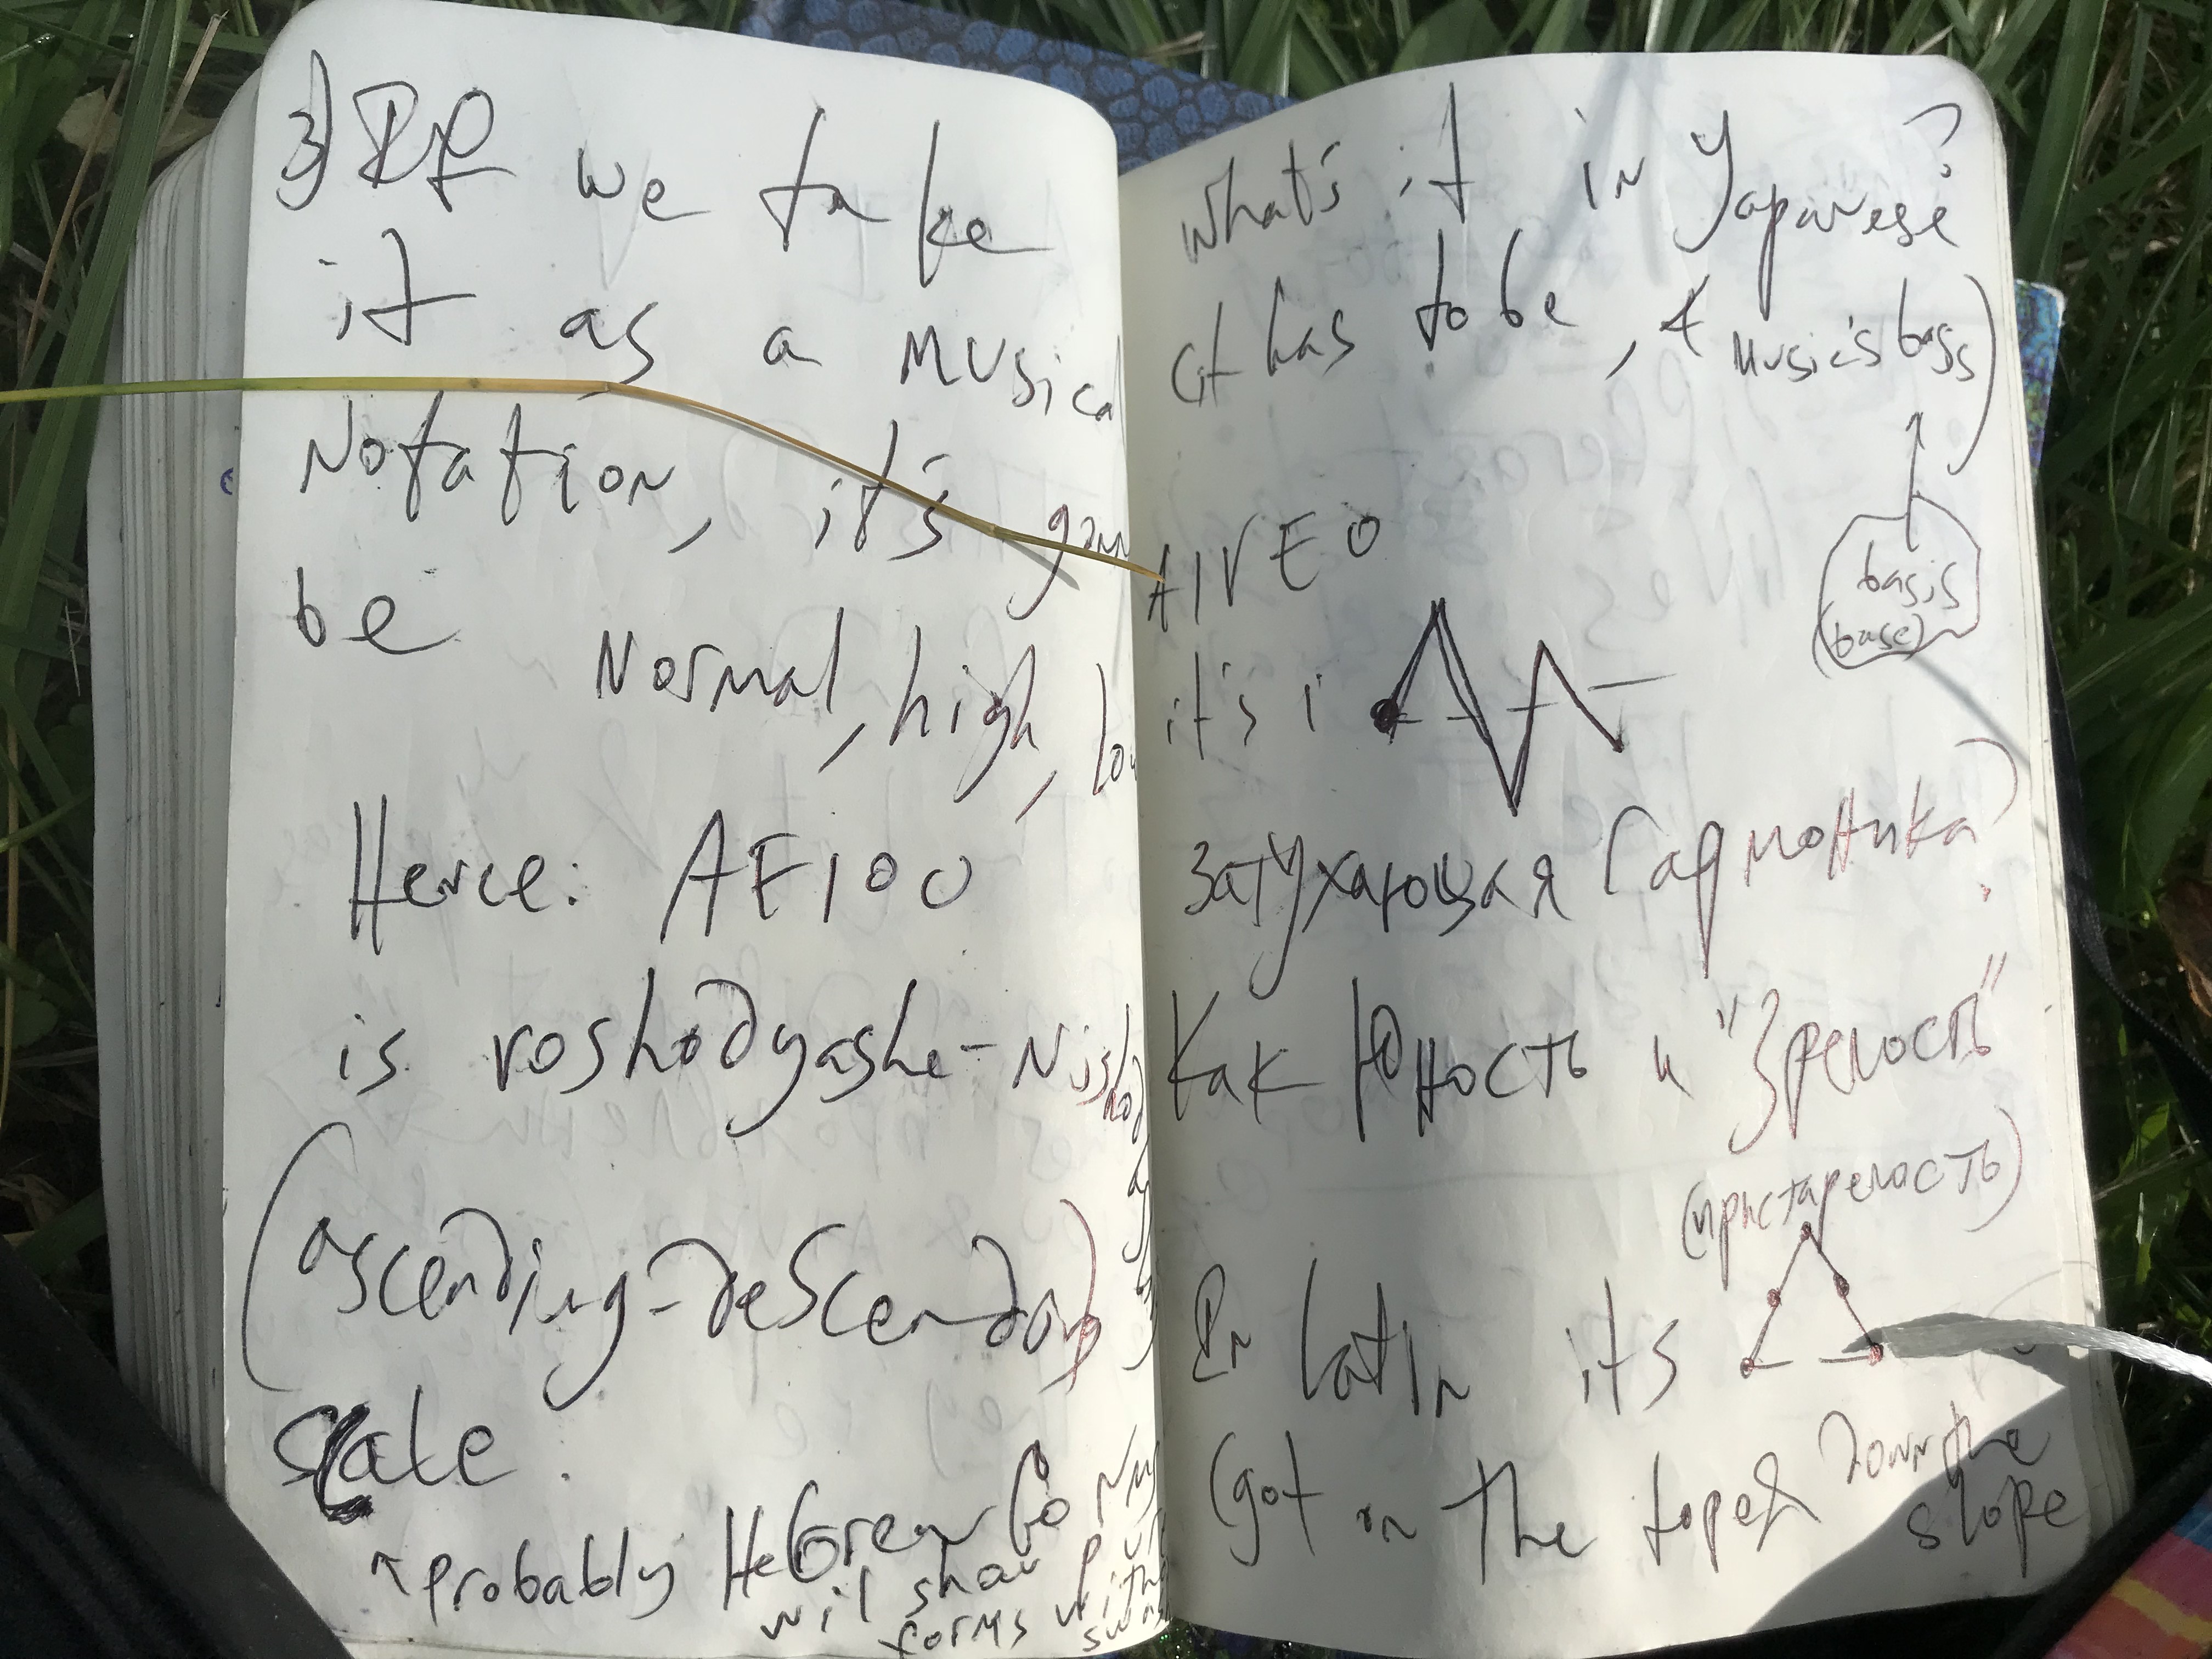 3) If we take
it as a musical
notation, it's gam
be normal, high, low
Hence: AEIOU
is voshodyashe-nis
(ascending-descending)
scale.
↖ Probably Hebrew
will share
forms with
What's it in Japanese?
It has to be, A musicis bass)
AIVEO
basis
(base)
it's i
затухающая гармоника?
как юность и "зрелость"
(престарелость)
In latin it's
(got on the top & down the
slope